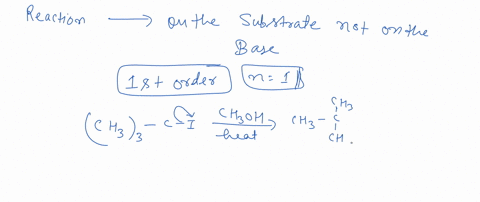 Reaction ⟶ on the Substrate not on the
Base
1st order n=1
(CH3)3 - C - I CH3OH heat ⟶ CH3 - C
CH3
CH.